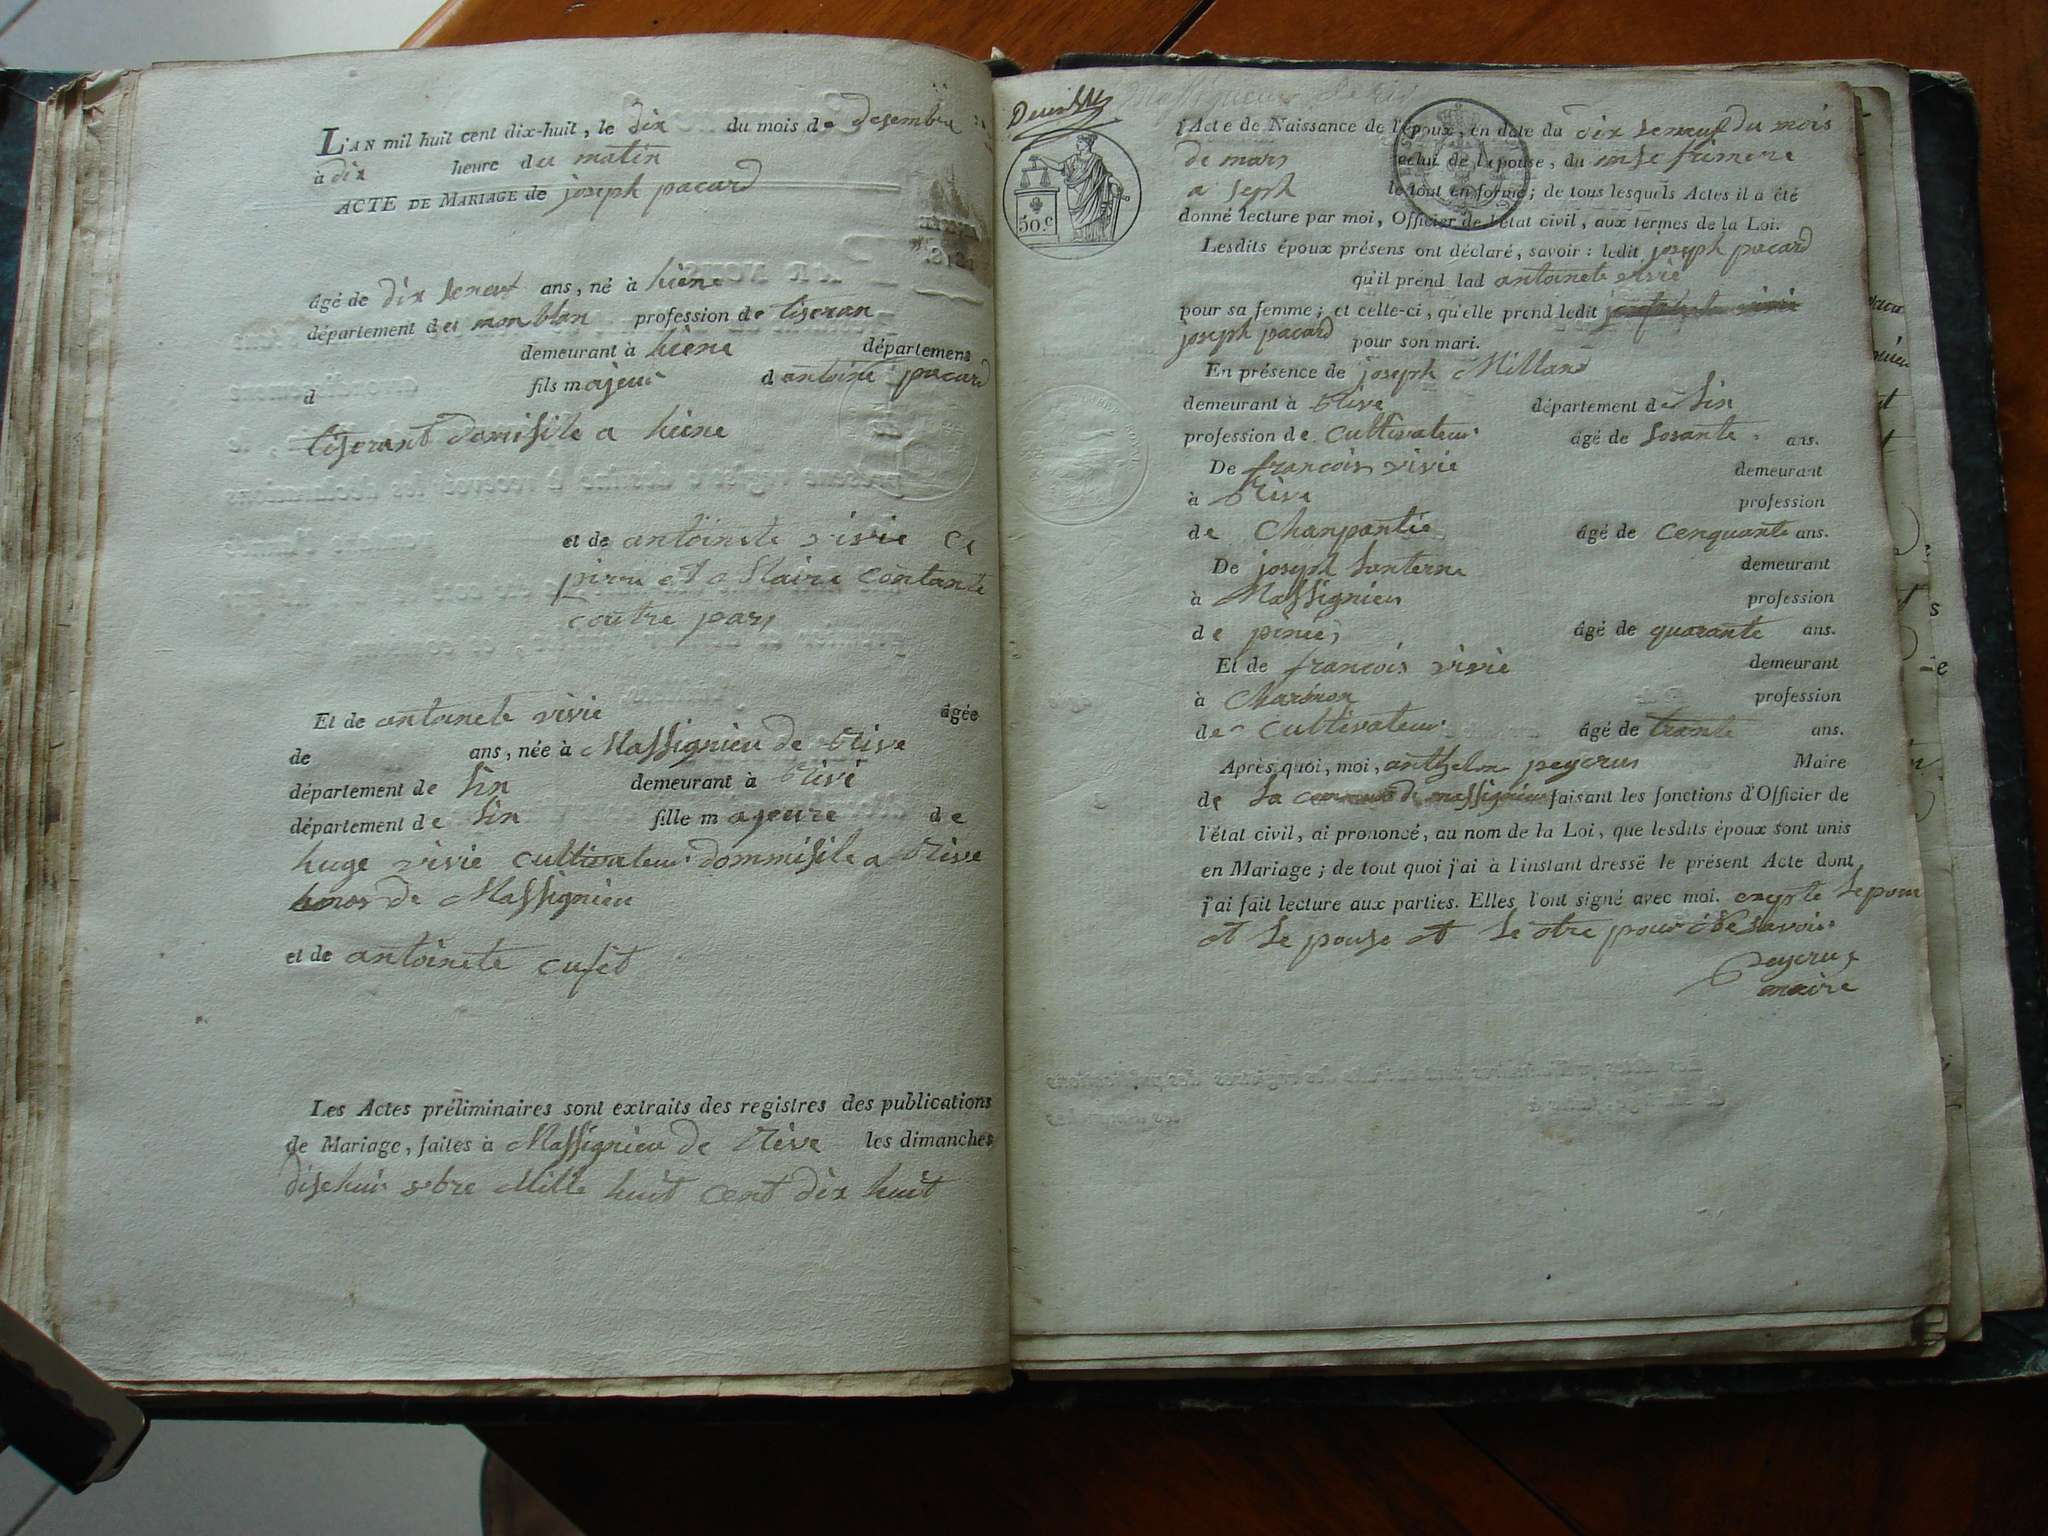 L'AN mil huit cent dix-huit, le dix du mois de desembre
à dix heure du matin
ACTE DE MARIAGE de joseph pacard
âgé de dix seneuf ans, né à hiene
département du monblan profession de tiseran
demeurant à hiene département
d fils majeur d antoine pacard
tiserant domisile a hiene
et de antoinete vivie
pirri et a Claire contante
coutre par
Et de antoinete vivie âgée
de ans, née à Massignieu de Rive
département de Lin demeurant à Rive
département de Lin fille majeure de
huge vivie cultivateur dommisile a Rive
de Massignieu
et de antoinete cuset
Les Actes préliminaires sont extraits des registres des publications
de Mariage, faites à Massignieu de Rive les dimanches
mille huit cent dix huit
50.c
l'Acte de Naissance de l'époux, en date du dix seneuf du mois
de mars celui de l'épouse, du onse frimere
a seph le tout en forme; de tous lesquels Actes il a été
donné lecture par moi, Officier de l'état civil, aux termes de la Loi.
Lesdits époux présens ont déclaré, savoir: ledit joseph pacard
qu'il prend lad antoinete vivie
pour sa femme; et celle-ci, qu'elle prend ledit
joseph pacard pour son mari.
En présence de joseph Milland
demeurant à Rive département de Lin
profession de cultivateur âgé de sosante ans.
De françois vivie demeurant
à Rive profession
de Chanpantié âgé de cenquante ans.
De joseph Lanterne demeurant
à Massignieu profession
de âgé de quarante ans.
Et de françois vivie demeurant
à profession
de cultivateur âgé de trante ans.
Après quoi, moi, anthelm peycrus Maire
de la commune de massignieu faisant les fonctions d'Officier de
l'état civil, ai prononcé, au nom de la Loi, que lesdits époux sont unis
en Mariage; de tout quoi j'ai à l'instant dressé le présent Acte dont
j'ai fait lecture aux parties. Elles l'ont signé avec moi. cexpte lepoux
et le pouse et le otre pour ne savoir
peycrus
maire